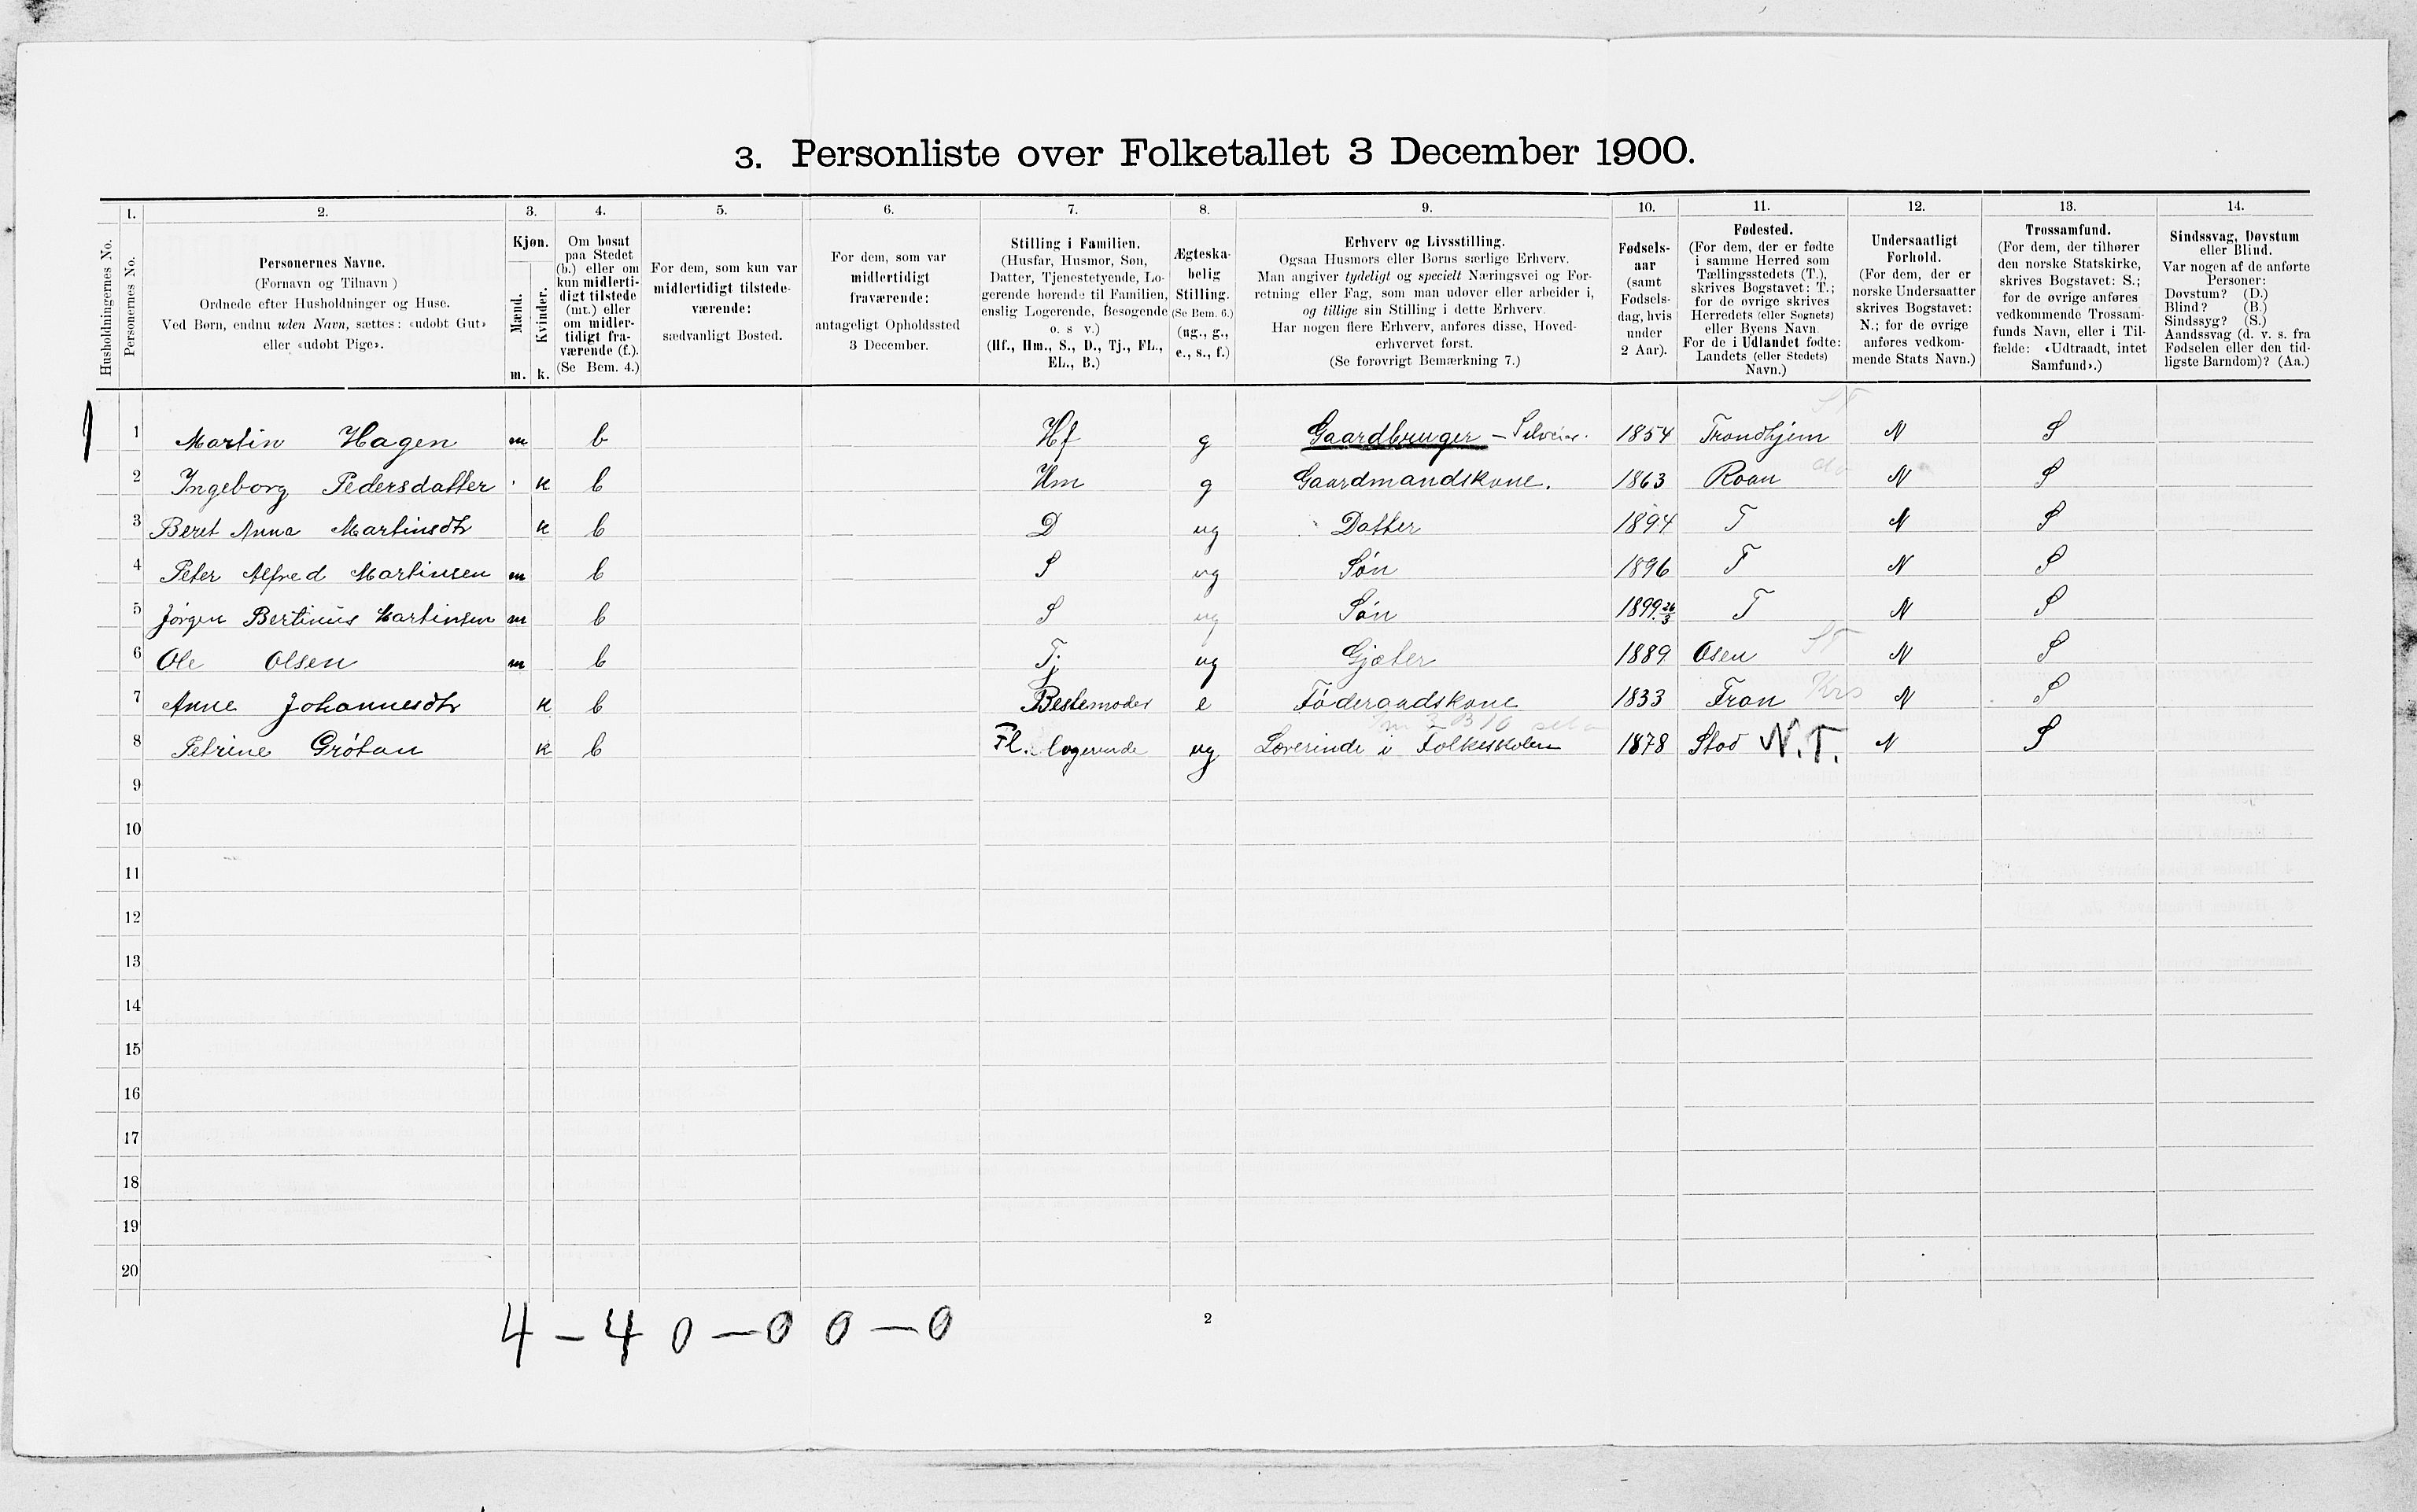 3. Personliste over Folketallet 3 December 1900.
Husholdningernes No.
1.
Personernes No.
2.
Personernes Navne.
(Fornavn og Tilnavn )
Ordnede efter Husholdninger og Huse.
Ved Børn, endnu uden Navn, sættes: «udøbt Gut»
eller «udøbt Pige».
3.
Kjøn.
Mænd.
Kvinder.
m. k.
4.
Om bosat
paa Stedet
(b.) eller om
kun midlerti-
digt tilstede
(mt.) eller
om midler-
tidigt fra-
værende (f.).
(Se Bem. 4.)
5.
For dem, som kun var
midlertidigt tilstede-
værende:
sædvanligt Bosted.
6.
For dem, som var
midlertidigt
fraværende:
antageligt Opholdssted
3 December.
7.
Stilling i Familien.
(Husfar, Husmor, Søn,
Datter, Tjenestetyende, Lo-
gerende hørende til Familien,
enslig Logerende, Besøgende
o. s v.)
(Hf., Hm., S., D., Tj., FL.,
EL., B.)
8.
Ægteska-
belig
Stilling.
(Se Bem. 6.)
(ug., g.,
e., s., f.)
9.
Erhverv og Livsstilling.
Ogsaa Husmors eller Børns særlige Erhverv.
Man angiver tydeligt og specielt Næringsvei og For-
retning eller Fag, som man udøver eller arbeider i,
og tillige sin Stilling i dette Erhverv.
Har nogen flere Erhverv, anføres disse, Hoved-
erhvervet først.
(Se forøvrigt Bemærkning 7.)
10.
Fødsels-
aar
(samt
Fødsels-
dag, hvis
under
2 Aar).
11.
Fødested.
(For dem, der er fødte
i samme Herred som
Tællingsstedets (T.),
skrives Bogstavet: T.;
for de øvrige skrives
Herredets (eller Sognets)
eller Byens Navn
For de i Udlandet fødte:
Landets (eller Stedets)
Navn.)
12.
Undersaatligt
Forhold.
(For dem, der er
norske Undersaatter
skrives Bogstavet:
N.; for de øvrige
anføres vedkom-
mende Stats Navn.)
13.
Trossamfund.
(For dem, der tilhører
den norske Statskirke,
skrives Bogstavet: S.;
for de øvrige anføres
vedkommende Trossam-
funds Navn, eller i Til-
fælde: «Udtraadt, intet
Samfund».)
14.
Sindssvag, Døvstum
eller Blind.
Var nogen af de anførte
Personer:
Døvstum? (D.)
Blind? (B.)
Sindssyg? (S.)
Aandssvag (d. v. s. fra
Fødselen eller den tid-
ligste Barndom)? (Aa.)
1 1 Martin Hagen m b Hf g Gaardbruger – Selveier. 1854 Trondhjem N S
2 Ingeborg Pedersdatter k b Hm g Gaardmandskone. 1863 Roan do N S
3 Beret Anna Martinsdtr k b D ug Datter 1894 T N S
4 Peter Alfred Martinsen m b S ug Søn 1896 T N S
5 Jørgen Bertinus Martinsen m b S ug Søn 1899 26/3 T N S
6 Ole Olsen m b Tj ug Gjæter 1889 Osen ST N S
7 Anne Johannesdtr k b Bestemoder e Føderaadskone 1833 Fron Krs N S
8 Petrine Grøtan k b Fl. logerende ug Lærerinde i Folkeskolen 1878 Stod N.T. N S
9
10
11
12
13
14
15
16
17
18
19
20
4 – 4 0 – 0 0 – 0
2